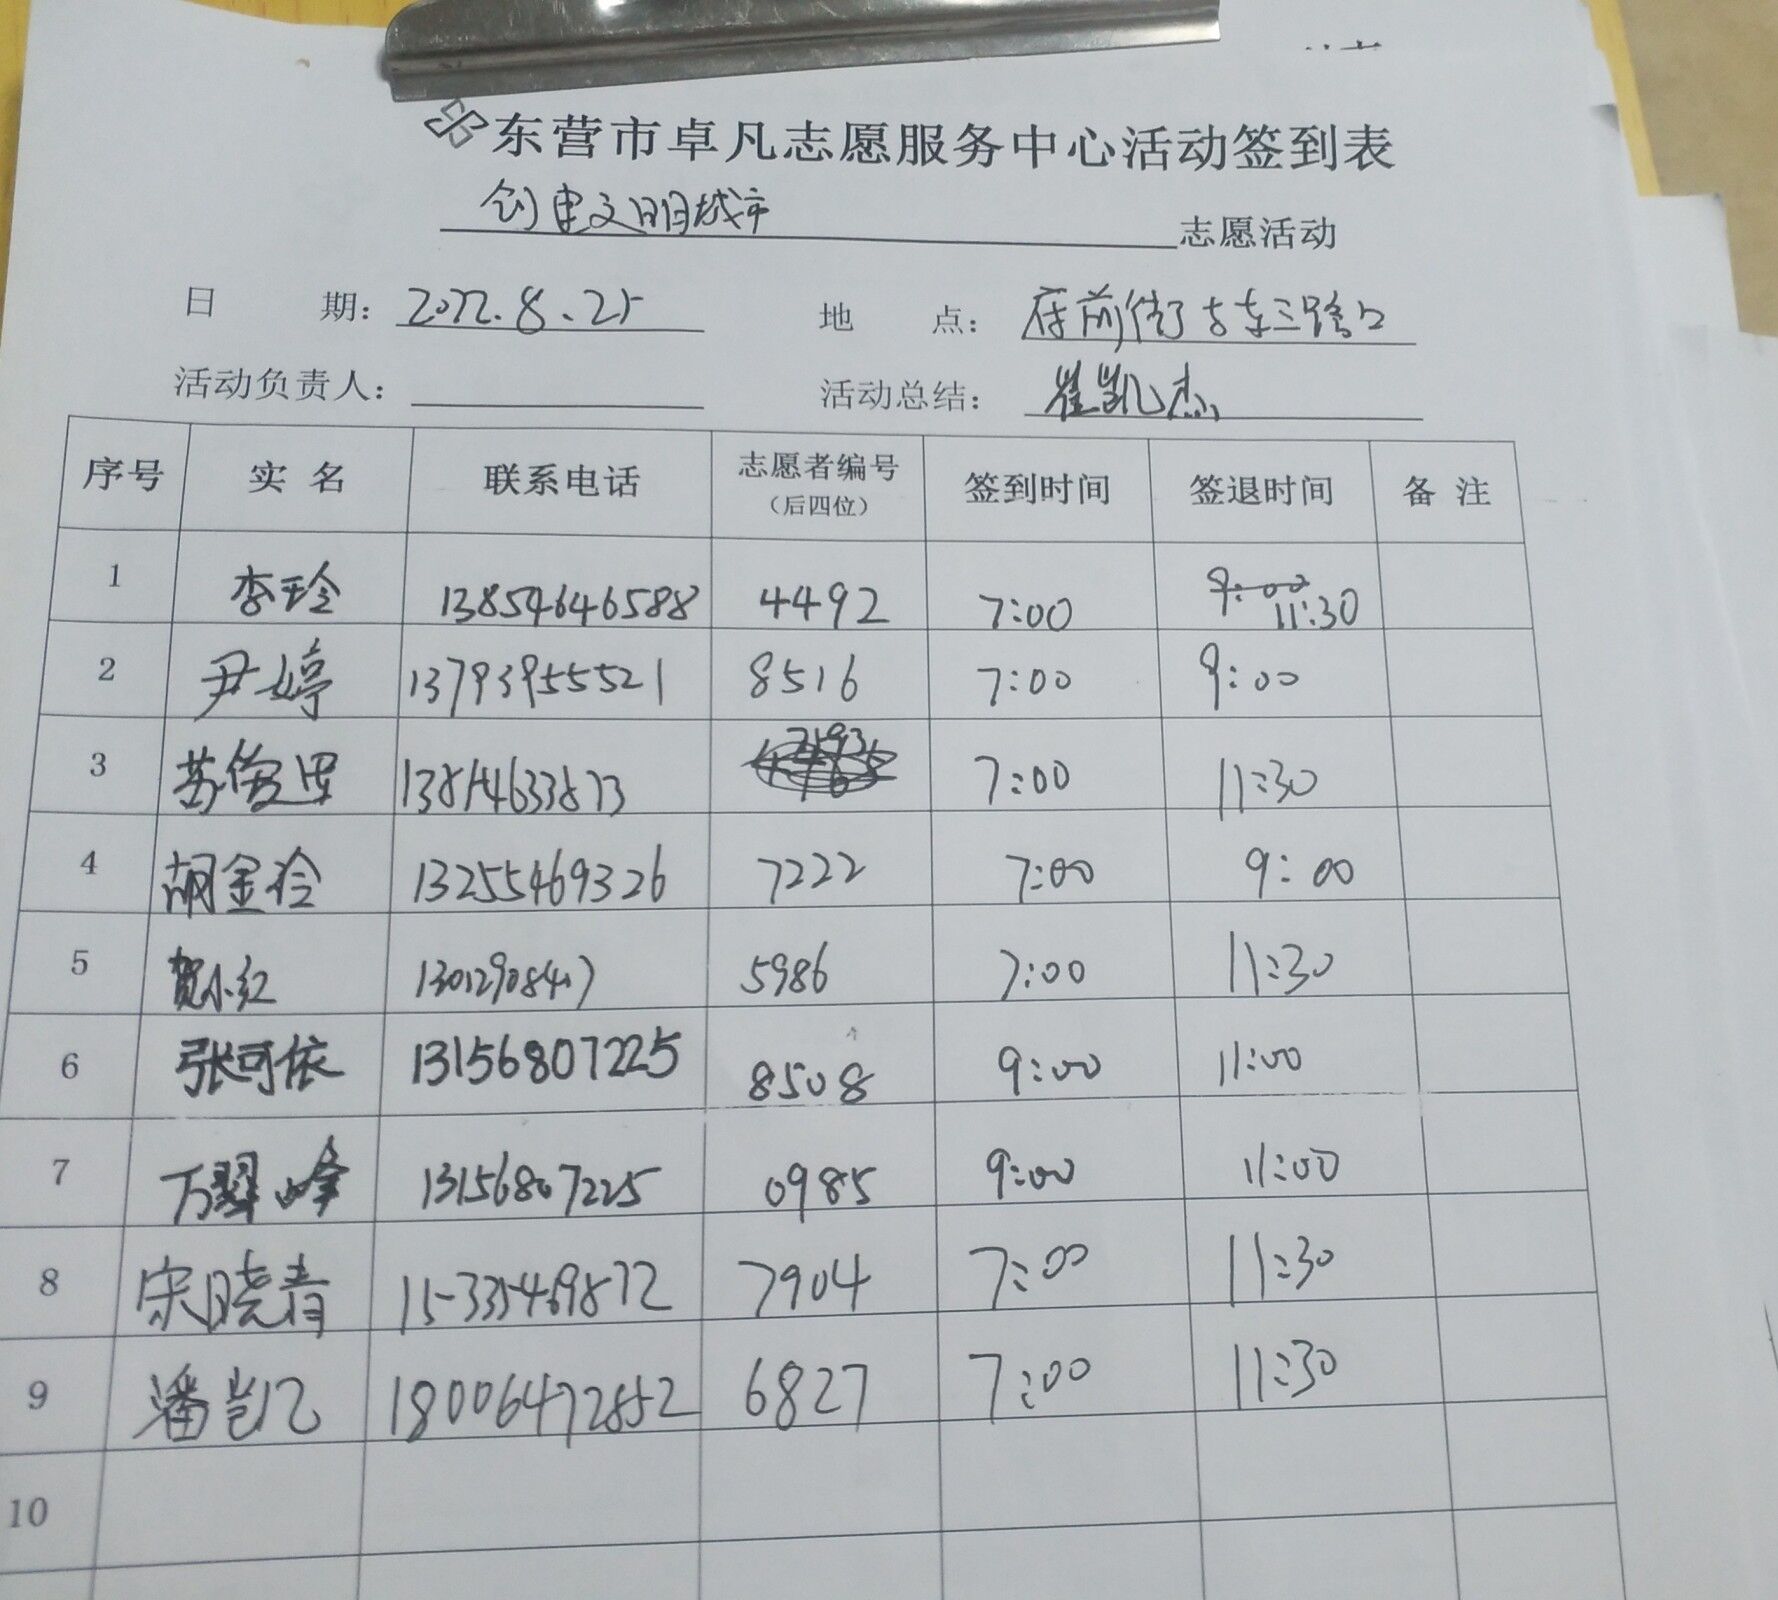 东营市卓凡志愿服务中心活动签到表
创建文明城市 志愿活动
日 期: 2022.8.25 地 点: 府前街与东三路口
活动负责人: 活动总结: 崔凯杰
序号 实 名 联系电话 志愿者编号（后四位） 签到时间 签退时间 备 注
1 李玲 13854646588 4492 7:00 9:00 11:30
2 尹婷 13793955521 8516 7:00 9:00
3 苏俊 13854633873 7:00 11:30
4 胡金玲 13255469326 7222 7:00 9:00
5 贺小红 13012908417 5986 7:00 11:30
6 张可依 13156807225 8508 9:00 11:00
7 万翠峰 13156807225 0985 9:00 11:00
8 宋晓青 15335469872 7904 7:00 11:30
9 潘岂凡 18006472852 6827 7:00 11:30
10